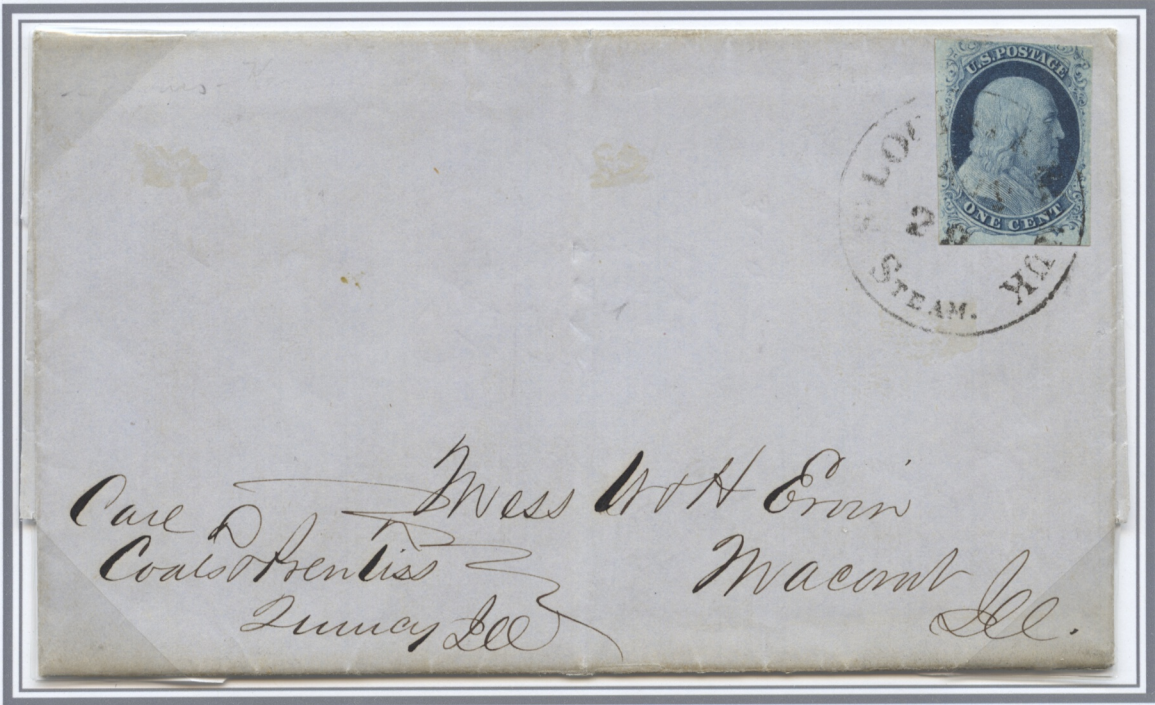 U.S. POSTAGE
ONE CENT
LOU
20
STEAM.
Mess W & H Ervin
Macomb
Ill.
Care
Coats & Prentiss
Quincy Ill